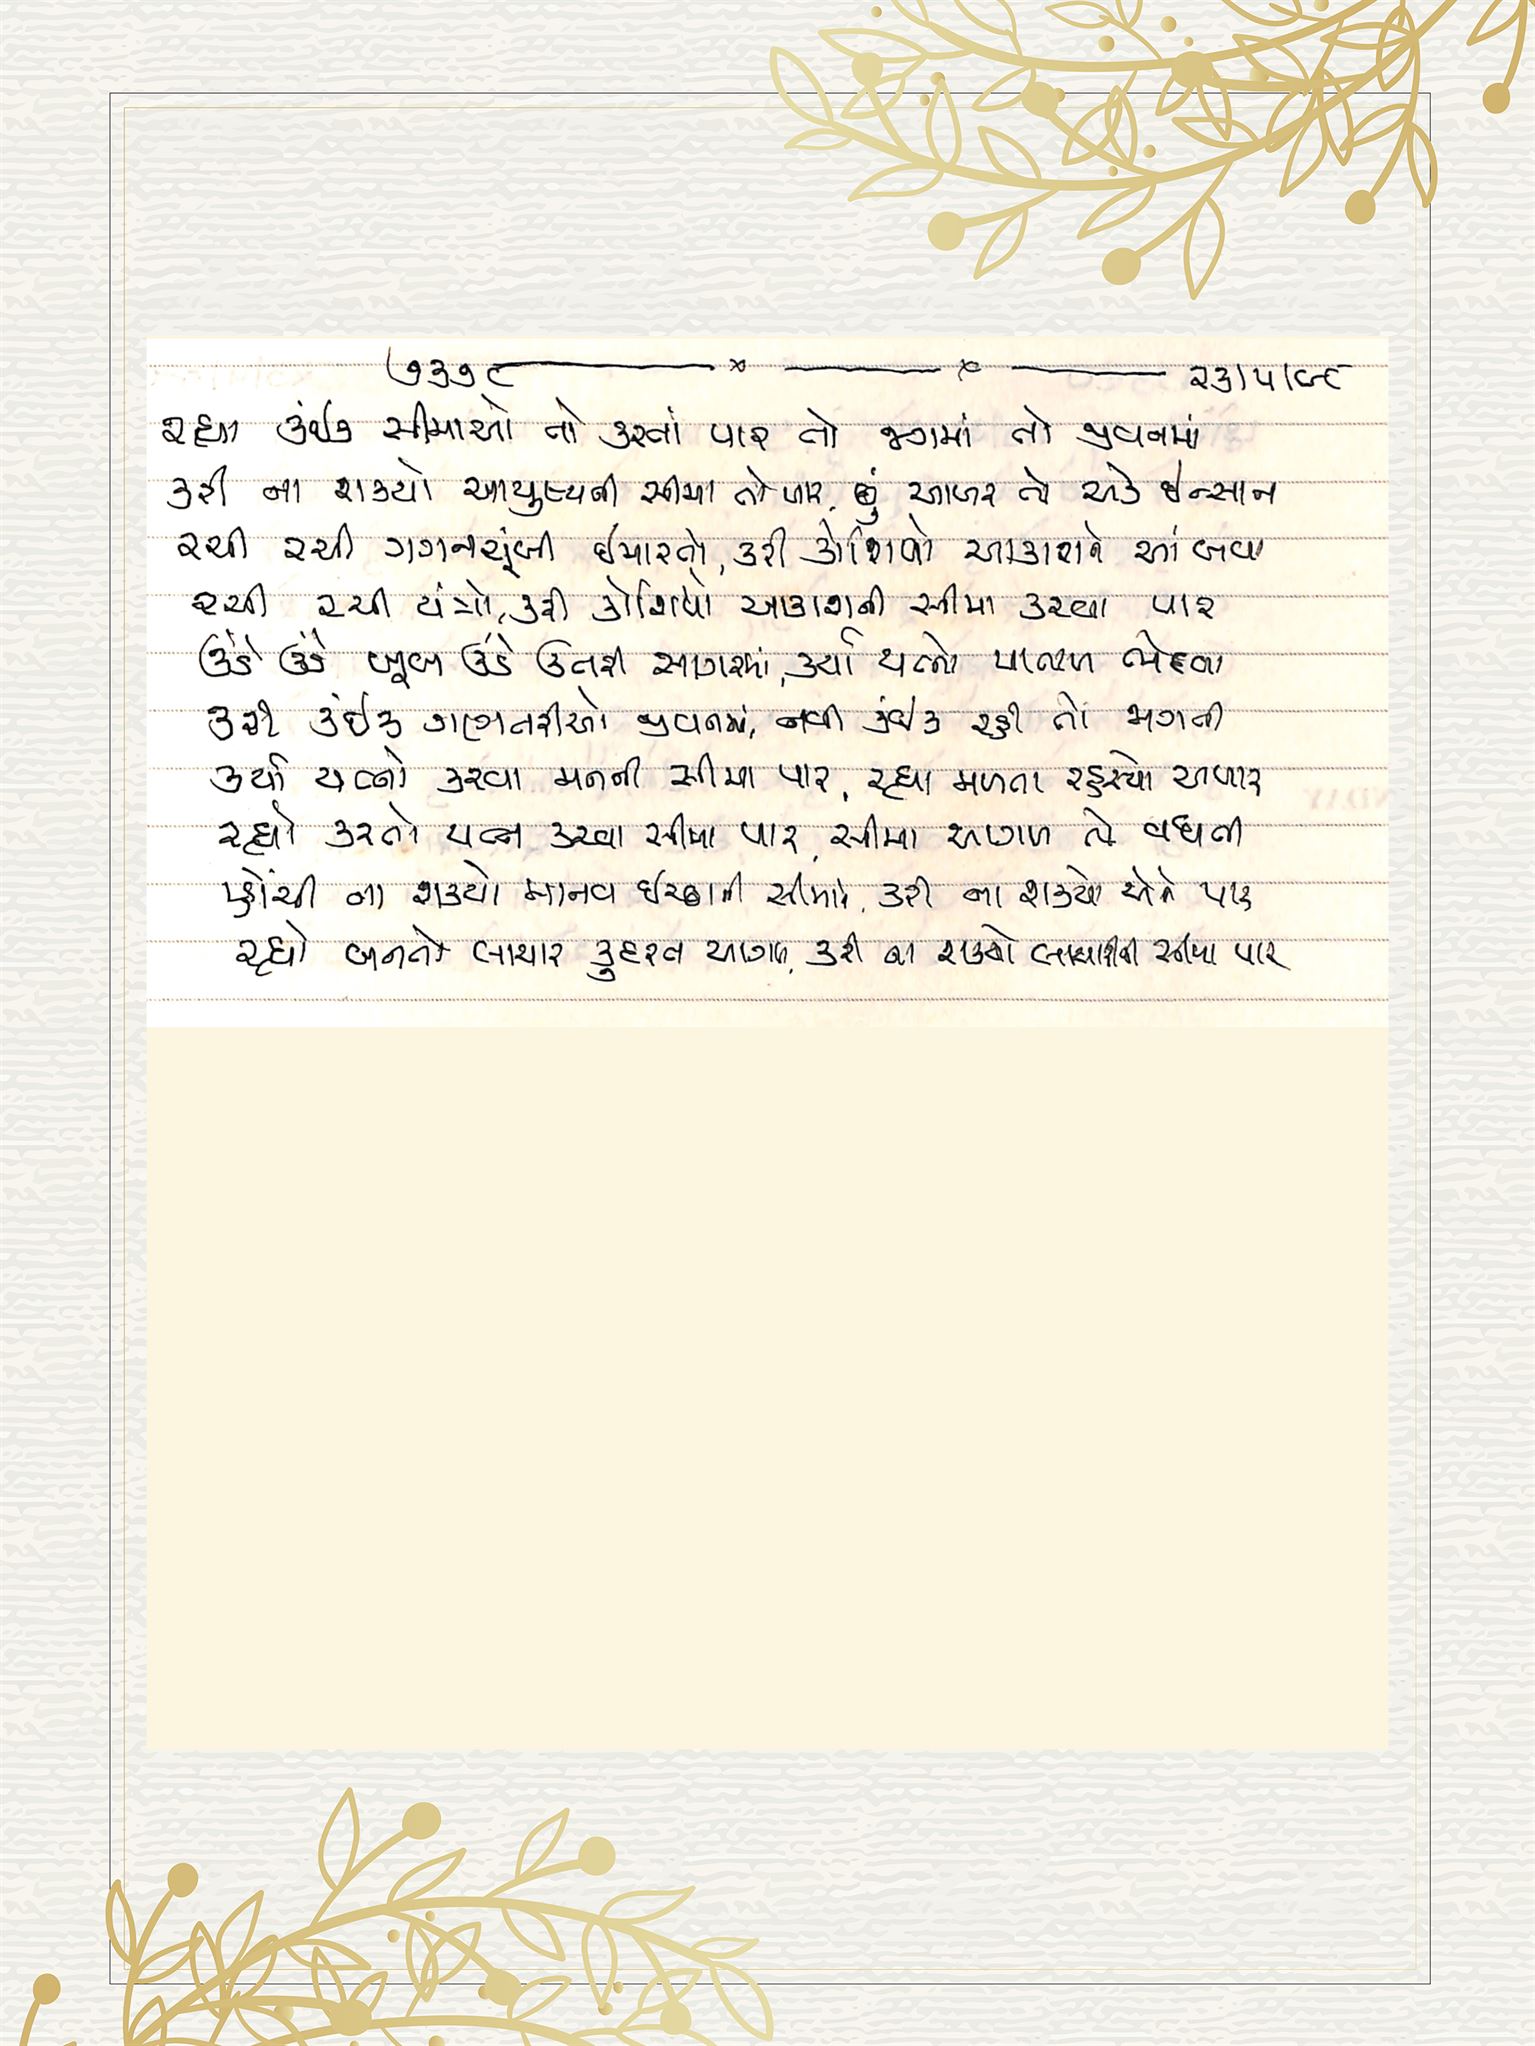 ૭૩૭૯ ૨૩/૫/૯૮
રહ્યા કંઈક સીમાઓ તો કરતાં પાર તો જગમાં તો જીવનમાં
કરી ના શક્યો આયુષ્યની સીમા તો પાર, છું આખર તો એક ઇન્સાન
રચી રચી ગગનચૂંબી ઈમારતો, કરી કોશિષો આકાશને આંબવા
રચી રચી યંત્રો, કરી કોશિષો આકાશની સીમા કરવા પાર
ઊંડે ઊંડે ખૂબ ઊંડે ઉતરી સાગરમાં, કર્યા યત્નો પાતાળ ભેદવા
કરી કંઈક ગણતરીઓ જીવનમાં, નવી કંઈક રહી તો
કર્યા યત્નો કરવા મનની સીમા પાર, રહ્યા મળતા રહસ્યો અપાર
રહ્યો કરતો યત્ન કરવા સીમા પાર, સીમા આગળ તો વધતી
પ્હોંચી ના શક્યો માનવ ઈચ્છાની સીમાએ, કરી ના શક્યો એને પાર
રહ્યો બનતો લાચાર કુદરત આગળ, કરી ના શક્યો લાચારીની સીમા પાર